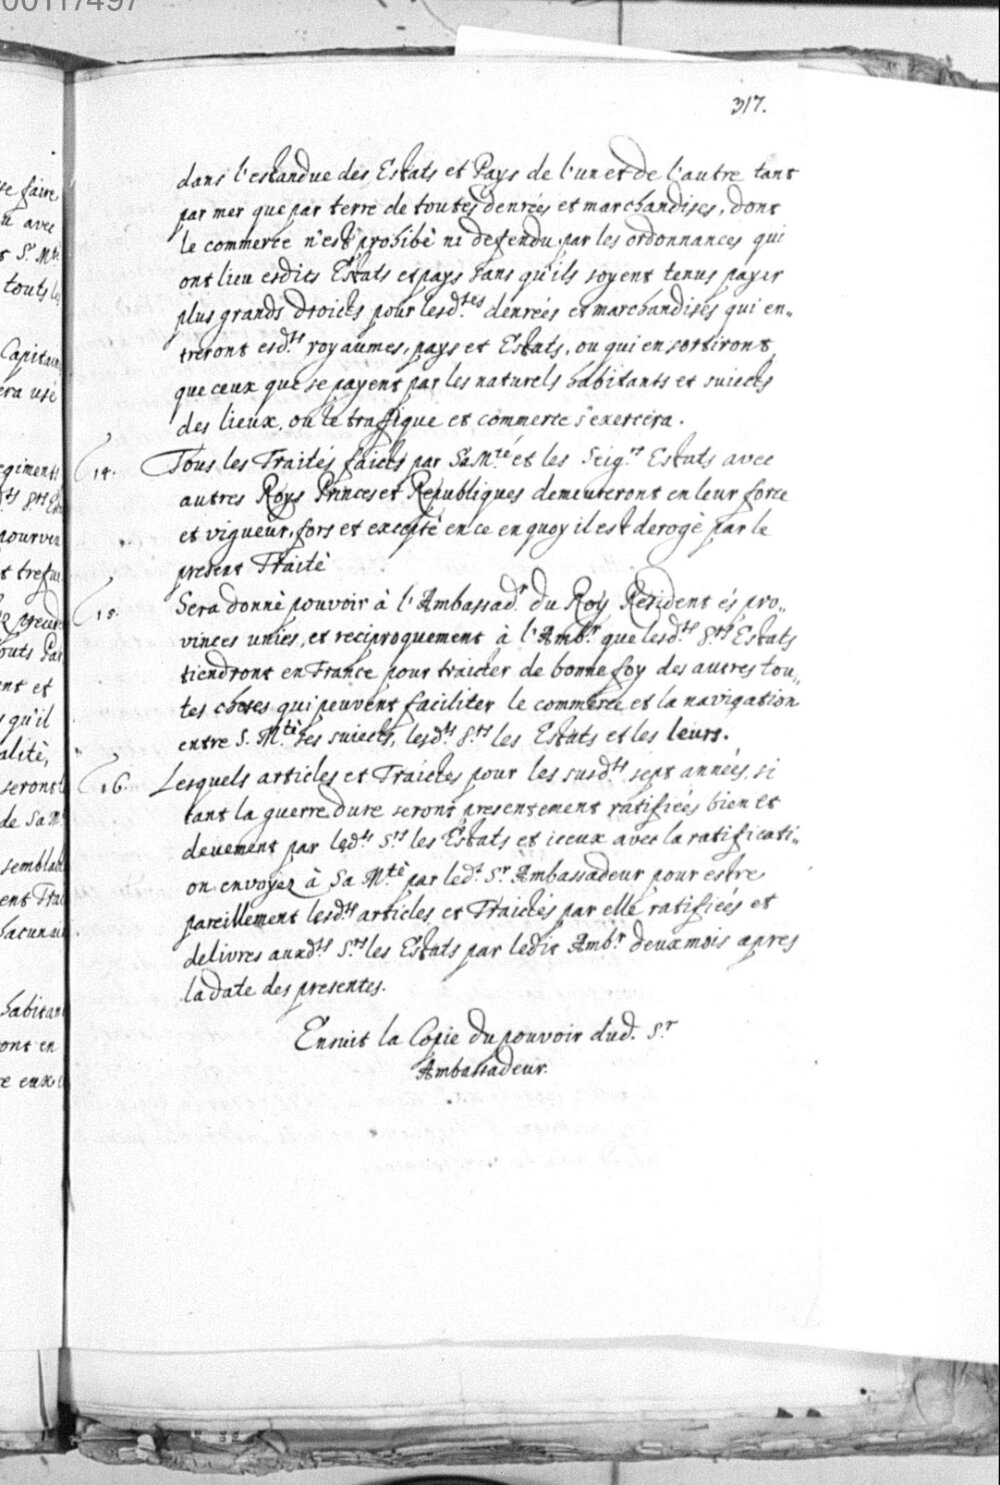 00117497
317.
dans l'estandue des Estats et Pays de l'un et de l'autre tant
par mer que par terre de toutes denrées et marchandises, dont
le commerce n'est prohibé ni defendu par les ordonnances qui
ont lieu esdits Estats et pays sans qu'ils soyent tenus payer
plus grands droicts pour lesd.tes denrées et marchandises qui en„
treront esd.ts royaumes, pays et Estats, ou qui en sortiront
que ceux que se payent par les naturels habitants et suiects
des lieux, ou le traffique et commerce s'exercera.
14. Tous les Traités faicts par Sa M.té et les Seig.rs Estats avec
autres Roys Princes et Republiques demeureront en leur force
et vigueur, fors et excepté en ce en quoy il est derogé par le
present Traité
15. Sera donné pouvoir à l'Ambassad.r du Roy Resident és pro„
vinces unies, et reciproquement à l'Amb.r que lesd.ts S.rs Estats
tiendront en France pour traicter de bonne foy des autres tou„
tes choses qui peuvent faciliter le commerce et la navigation
entre S. M.té ses suiects, lesd.ts S.rs les Estats et les leurs.
16. Lesquels articles et Traictes pour les susd.ts sept années, si
tant la guerre dure seront presentement ratifiées bien et
deuement par lesd.ts S.rs les Estats et iceux avec la ratificati„
on envoyez à Sa M.té par led.t S.r Ambassadeur pour estre
pareillement lesd.ts articles et Traictes par elle ratifiées et
delivres auxd.ts S.rs les Estats par ledit Amb.r deux mois apres
la date des presentes.
Ensuit la Copie du pouvoir dud. S.r
Ambassadeur.